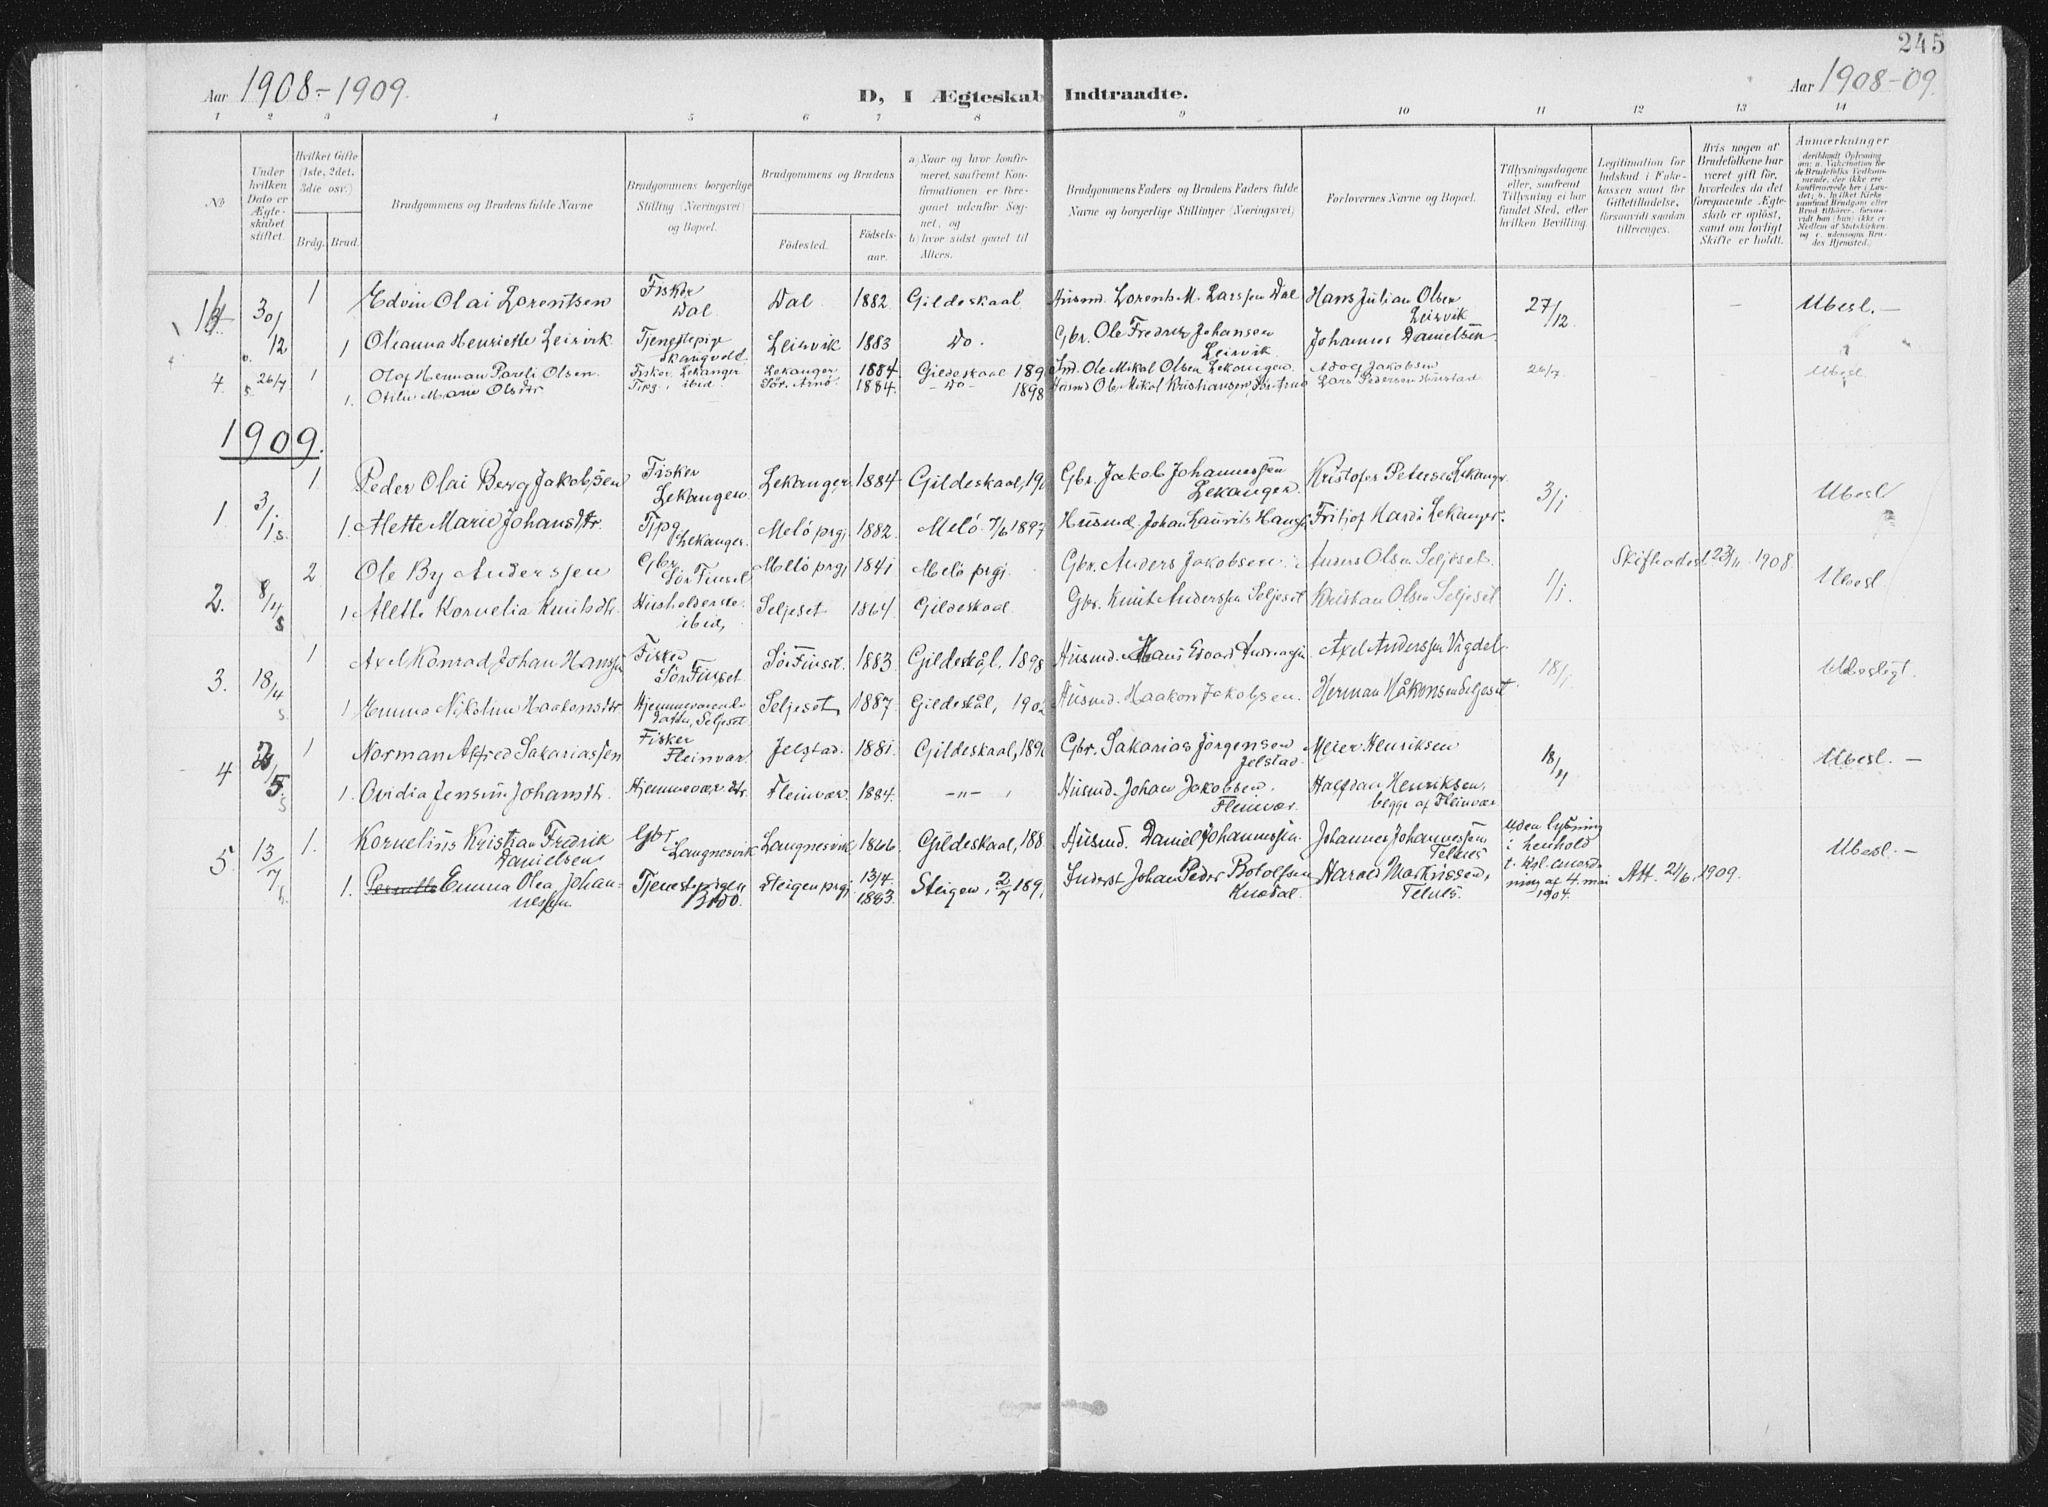 245
Aar 1908-1909.
D, I Ægteskab Indtraadte.
Aar 1908-09.
1 2 3 4 5 6 7 8 9 10 11 12 13 14
No
Under hvilken Dato er Ægteskabet stiftet.
Hvilket Gifte (1ste, 2det, 3die osv.)
Brdg. Brud.
Brudgommens og Brudens fulde Navne
Brudgommens borgerlige Stilling (Næringsvei) og Bopæl.
Brudgommens og Brudens
Fødested.
Fødselsaar.
a) Naar og hvor konfirmeret, saafremt Konfirmationen er foregaaet udenfor Sognet, og
b) hvor sidst gaaet til Alters.
Brudgommens Faders og Brudens Faders fulde Navne og borgerlige Stillinger (Næringsvei)
Forlovernes Navne og Bopæl.
Tillysningsdagene eller, saafremt Tillysning ei har fundet Sted, efter hvilken Bevilling.
Legitimation for Indskud i Enkekassen samt for Giftetilladelse, forsaavidt saadan tiltrænges.
Hvis nogen af Brudefolkene har været gift før, hvorledes da det foregaaende Ægteskab er opløst, samt om lovligt Skifte er holdt.
Anmærkninger
30/12 1 Edvin Olai Lorentsen Fisker Dal Dal 1882 Gildeskaal Husmd. Lorents M. Larssen Dal Hans Julian Olsen Leisvik 27/12 Ubesl.
1 Oleanna Henriette Leisvik Tjenestepige Leisvik 1883 Do. Gbr. Ole Fredrik Johansen Leisvik Johannes Danielsen
4. 26/7 1 Olaf Herman Pareli Olsen Fisker Lekanger Lekanger 1884 Gildeskaal Ind. Ole Mikal Olsen Lekangen Adolf Jakobsen 26/7 Ubesl
1. Otilie Marie Olsdtr Tjpg. ibid Sør. Arnø 1884. Do 1898 Husmd Ole Mikal Kristiansen, Sør Arnø Lars Pedersen
1909.
1. 3/1 s. 1 Peder Olai Berg Jakobsen Fisker Lekangen Lekanger 1884 Gildeskaal, Gbr. Jakob Johannessen Lekanger. Kristofer Petersen Lekangr. 3/1 Ubesl
1. Alette Marie Johansdtr. Tjpg Lekanger. Melö prgj 1882. Melö 7/6 1897 Husmd Johan Laurits Hansen Fritjof Hardi Lekanger.
2. 8/4 s 2 Ole By Anderssen Gbr. Sør Finset Melö prgj 1841 Melö prgj. Gbr. Anders Jakobsen Anders Olsen Seljeset. 1/1 Skifteattest 23/11 1908. Ubesl
1 Alette Kornelia Knutsdtr. Husholderske ibid, Seljeset 1864 Gildeskaal Gbr. Knut Anderssen Seljeset Kristian Olsen Seljeset
3. 18/4 s. 1 Axel Konrad Johan Hanssen Fisker Sør Finset. Sør Finset. 1883 Gildeskål. 1898 Husmd. Hans Edvard Andreassen Axel Anderssen Vigdel. 18/1 Ubeslegt.
1 Hemma Nikoline Haakonsdtr Hjemmeværende datter, Seljeset Seljeset 1887 Gildeskål, 1902 Husmd. Haakon Jakobsen. Herman Håkonsen Seljeset
4 5 s 1 Norman Alfred Sakariassen Fisker Fleinvær. Jelstad. 1881. Gildeskaal, Gbr. Sakarias Jörgensen Jelstad. Meier Henriksen 18/4 Ubesl.
1. Ovidia Jensine Johansdtr. Hjemmevær. dtr. Fleinvær. 1884. —„— Husmd. Johan Jakobsen. Fleinvær. Halfdan Henriksen, begge af Fleinvær
5. 13/7 h. 1. Kornelius Kristian Fredrik Danielsen Gbr Langnesvik Langnesvik 1866 Gildeskaal, Husmd. Daniel Johannessen Johannes Johannessen Telnes Uden lysning i henhold t. kgl. anordning af 4. mai 1904. Att. 21/6 1909. Ubesl.
1. Emma Olea Johannessen Tjenestepigen Bodø. Steigen prgj 13/4. 1883 Steigen, 2/7 Inderst Johan Peder Botolfsen Knædal. Harald Markussen, Telnes.